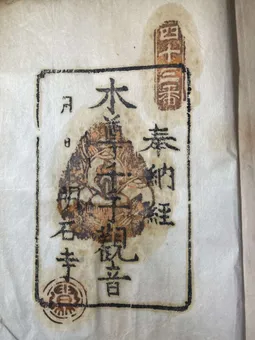 四十三番
奉納經
本尊千手觀音
月 日 明石寺